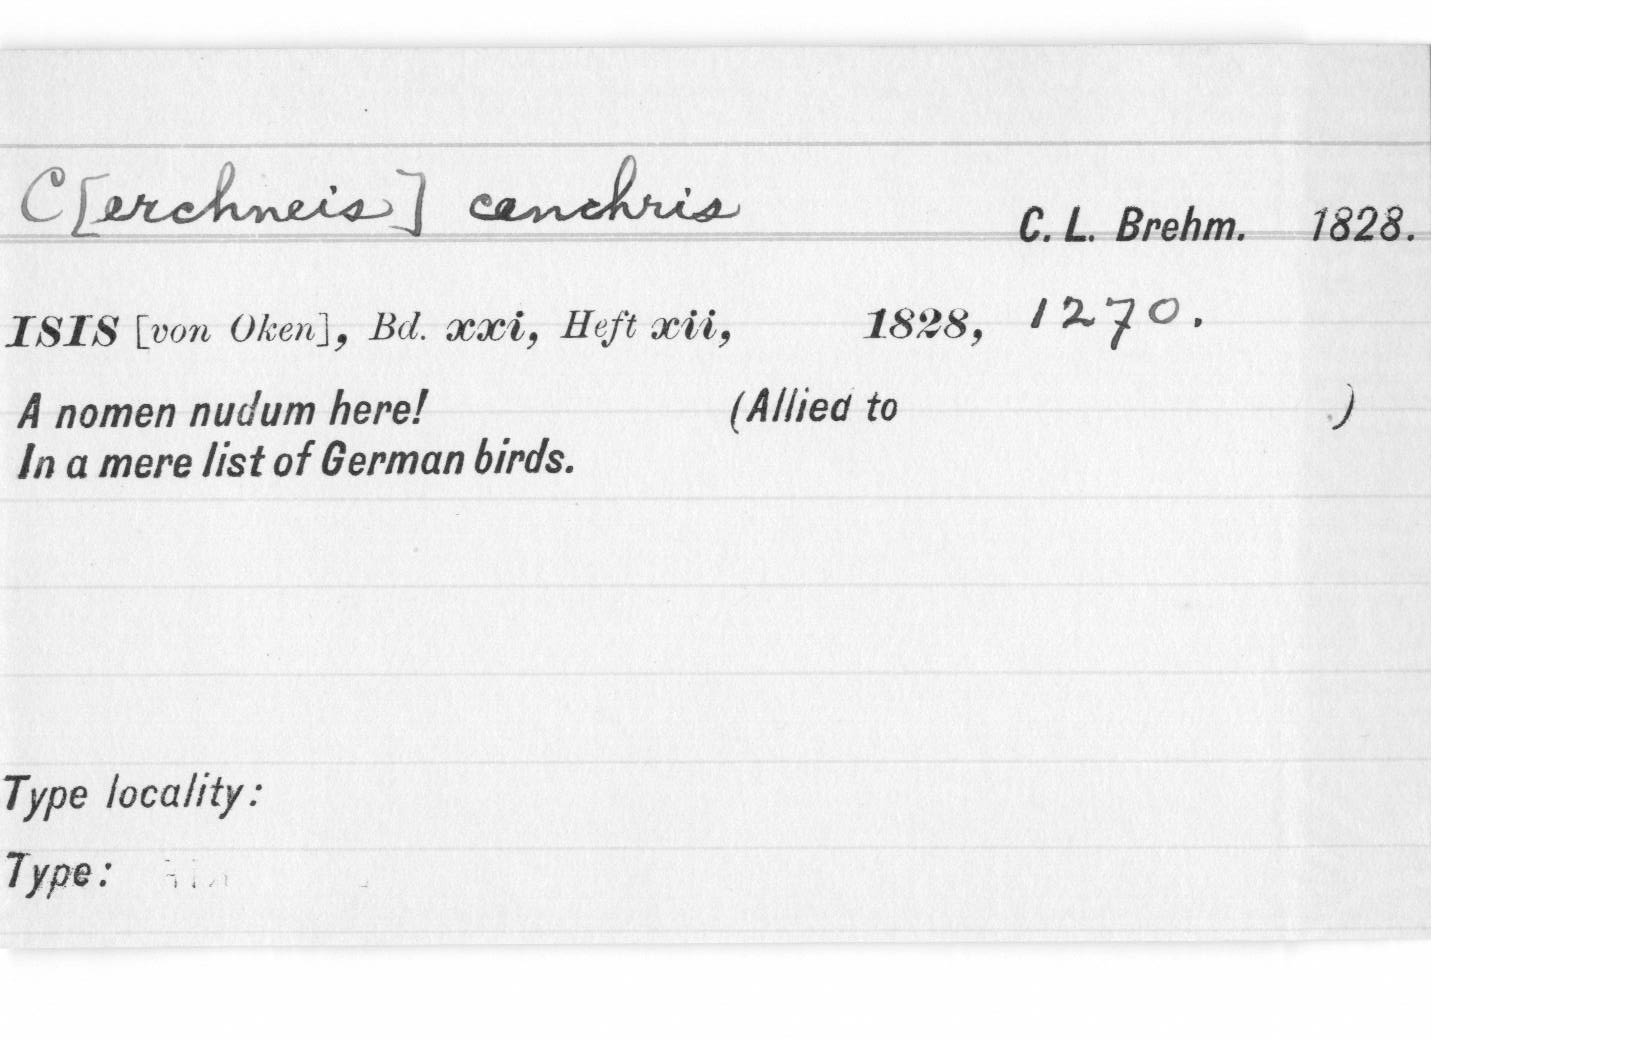 C[erchneis] cenchris C. L. Brehm. 1828.
ISIS [von Oken], Bd. xxi, Heft xii, 1828, 1270.
A nomen nudum here! (Allied to .)
In a mere list of German birds.
Type locality:
Type: